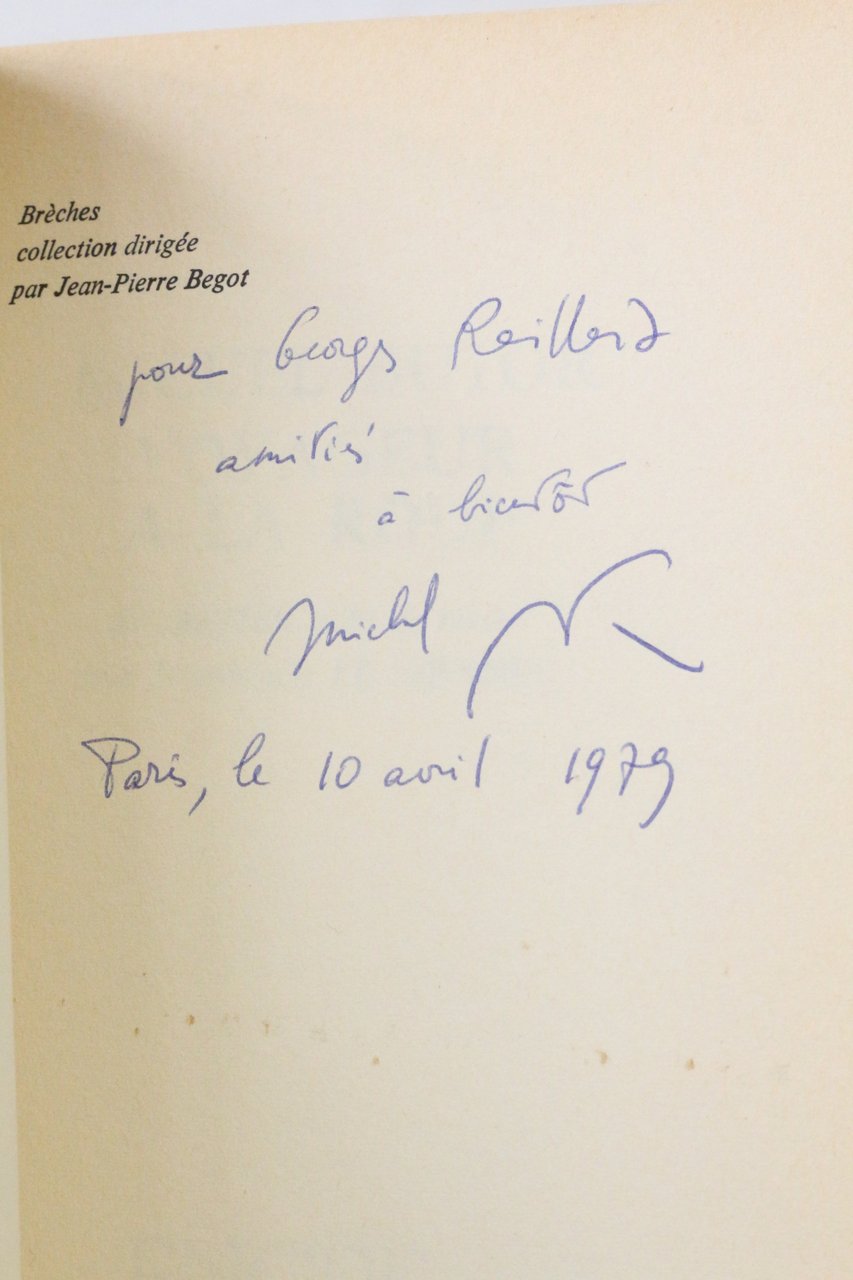 Brèches
collection dirigée
par Jean-Pierre Begot
pour Georges Raillard
amitiés
à bientôt
Michel
Paris, le 10 avril 1979